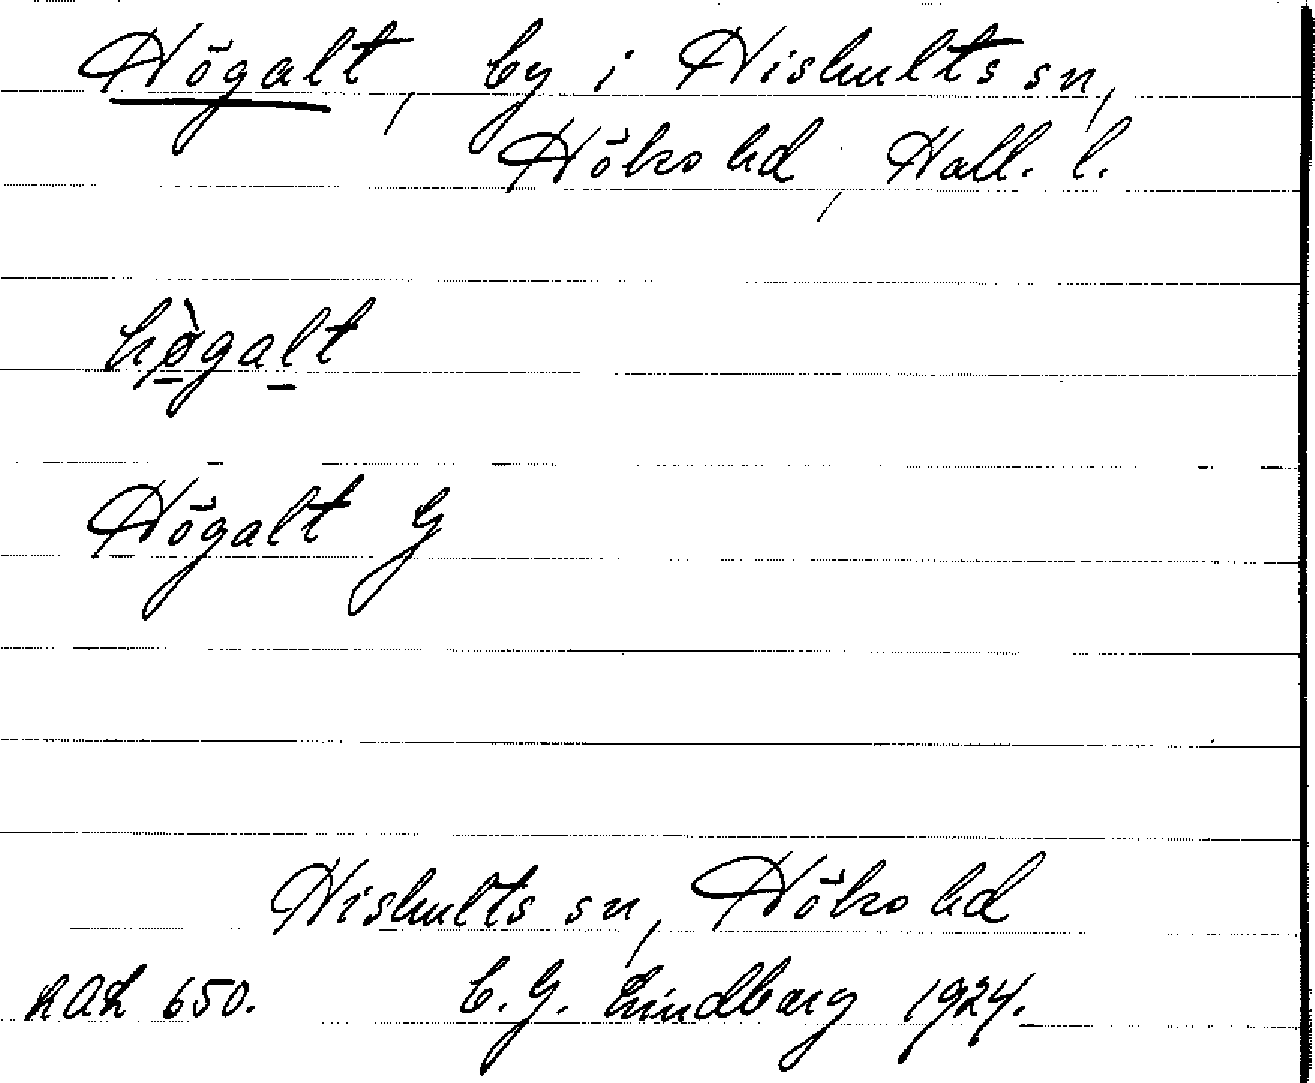 Högalt, by i Hishults sn,
Höks hd, Hall. l.
hø̀galt
Högalt G
Hishults sn, Höks hd
RAÄ 650. C. G. Lindberg 1924.